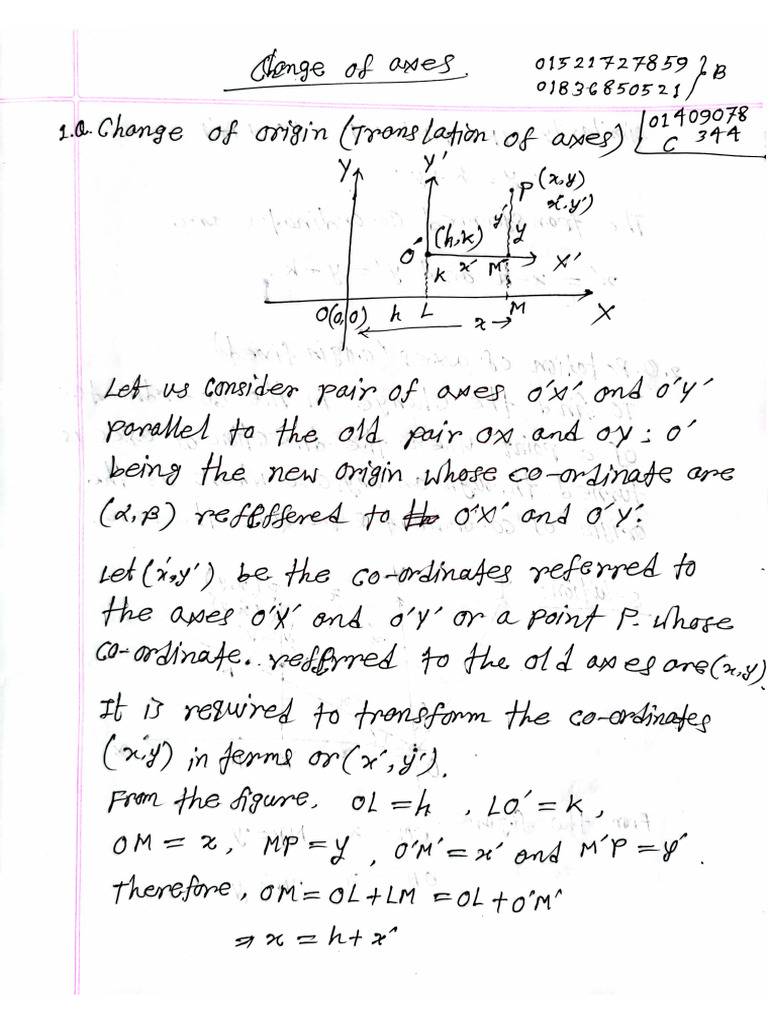 Change of axes.
01521727859 } B
01836850521
01409078
C 344
1.Q. Change of origin (Translation of axes)
Y Y'
P (x,y)
x',y')
O' (h,k) y' y
k x' M' X'
O(0,0) h L M X
x
Let us consider pair of axes O'X' and O'Y'
parallel to the old pair OX and OY; O'
being the new origin whose co-ordinate are
(α,β) refeffered to O'X' and O'Y'.
Let (x',y') be the co-ordinates referred to
the axes O'X' and O'Y' or a point P. whose
co-ordinate. refferred to the old axes are (x,y).
It is required to transform the co-ordinates
(x,y) in terms or (x', y').
From the figure, OL = h , LO' = k ,
OM = x, MP = y , O'M' = x' and M'P = y' .
Therefore, OM = OL + LM = OL + O'M'
⇒ x = h + x'